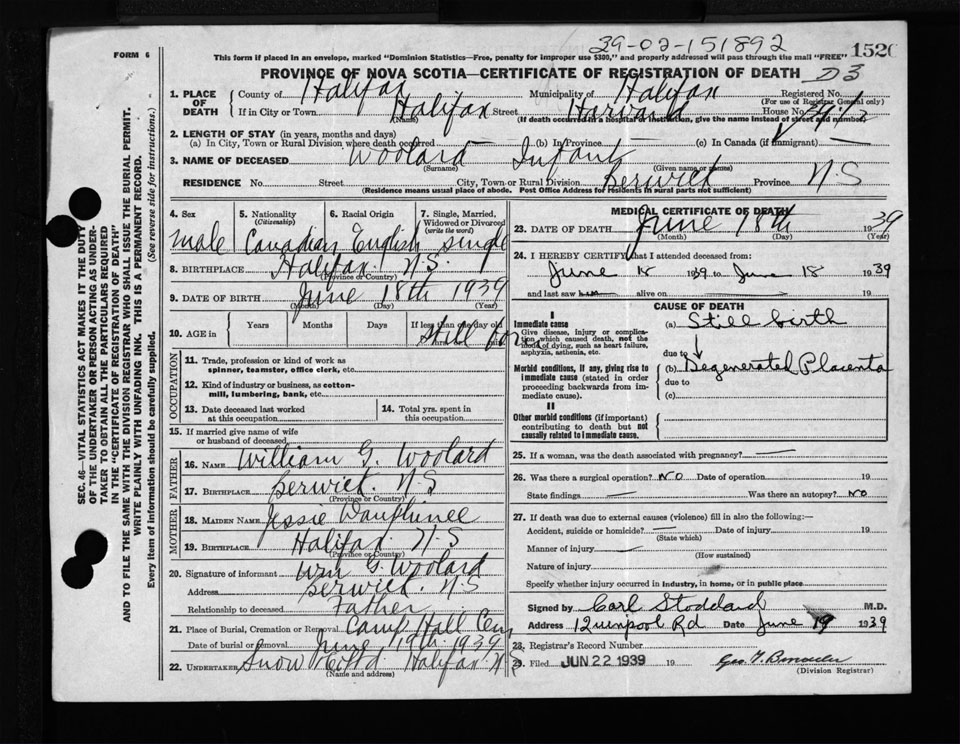 29-02-151892
FORM 6
This form if placed in an envelope, marked "Dominion Statistics—Free, penalty for improper use $300," and properly addressed will pass through the mail "FREE"
1520
PROVINCE OF NOVA SCOTIA—CERTIFICATE OF REGISTRATION OF DEATH
D3
1. PLACE OF DEATH
County of Halifax Municipality of Halifax Registered No.
(For use of Registrar General only)
If in City or Town Halifax Street Harvard House No.
(Name) (If death occurred in a hospital or institution, give the name instead of street and number)
2. LENGTH OF STAY (in years, months and days)
(a) In City, Town or Rural Division where death occurred — (b) In Province — (c) In Canada (if immigrant) —
3. NAME OF DECEASED Woolard Infant
(Surname) (Given name or names)
RESIDENCE No. Street City, Town or Rural Division Berwick Province N-S
(Residence means usual place of abode. Post Office Address for residents in rural parts not sufficient)
4. Sex
male
5. Nationality
(Citizenship)
Canadian
6. Racial Origin
English
7. Single, Married, Widowed or Divorced
(write the word)
single
8. BIRTHPLACE Halifax N.S.
(Province or Country)
9. DATE OF BIRTH June 18th 1939
(Month) (Day) (Year)
10. AGE in
Years Months Days If less than one day old
Still born
OCCUPATION
11. Trade, profession or kind of work as spinner, teamster, office clerk, etc.
12. Kind of industry or business, as cotton-mill, lumbering, bank, etc.
13. Date deceased last worked at this occupation
14. Total yrs. spent in this occupation
15. If married give name of wife or husband of deceased
FATHER
16. NAME William G. Woolard
17. BIRTHPLACE Berwick N.S
(Province or Country)
MOTHER
18. MAIDEN NAME Jessie Dauphinee
19. BIRTHPLACE Halifax N-S
(Province or Country)
20. Signature of informant Wm G. Woolard
Address Berwick N-S
Relationship to deceased Father
21. Place of Burial, Cremation or Removal Camp Hill Cem
Date of burial or removal June 19th 1939
22. UNDERTAKER Snow & Co Ltd Halifax N.S
(Name and address)
MEDICAL CERTIFICATE OF DEATH
23. DATE OF DEATH June 18th 1939
(Month) (Day) (Year)
24. I HEREBY CERTIFY that I attended deceased from:
June 18 1939 to June 18 1939
and last saw him alive on 19
CAUSE OF DEATH
I
Immediate cause
Give disease, injury or complication which caused death, not the mode of dying, such as heart failure, asphyxia, asthenia, etc.
(a) Still birth
due to
Morbid conditions, if any, giving rise to immediate cause (stated in order proceeding backwards from immediate cause).
(b) Degenerated Placenta
due to
(c)
II
Other morbid conditions (if important) contributing to death but not causally related to immediate cause.
25. If a woman, was the death associated with pregnancy? —
26. Was there a surgical operation? NO Date of operation 19
State findings — Was there an autopsy? NO
27. If death was due to external causes (violence) fill in also the following:—
Accident, suicide or homicide? — Date of injury 19
(State which)
Manner of injury —
(How sustained)
Nature of injury
Specify whether injury occurred in industry, in home, or in public place
Signed by Carl Stoddard M.D.
Address 12 uinpool Rd Date June 19 1939
28. Registrar's Record Number
29. Filed JUN 22 1939 19
(Division Registrar)
SEC. 46—VITAL STATISTICS ACT MAKES IT THE DUTY OF THE UNDERTAKER OR PERSON ACTING AS UNDERTAKER TO OBTAIN ALL THE PARTICULARS REQUIRED IN THE "CERTIFICATE OF REGISTRATION OF DEATH" AND TO FILE THE SAME WITH THE DIVISION REGISTRAR WHO SHALL ISSUE THE BURIAL PERMIT.
WRITE PLAINLY WITH UNFADING INK. THIS IS A PERMANENT RECORD.
Every item of information should be carefully supplied. (See reverse side for instructions.)